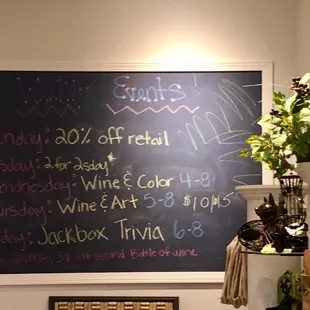 Weekly Events!
nday: 20% off retail
sday: 2 for 2sday*
dnesday: Wine & Color 4-8
ursday: Wine & Art 5-8 $10/15
day: Jackbox Trivia 6-8
off Second Bottle of wine